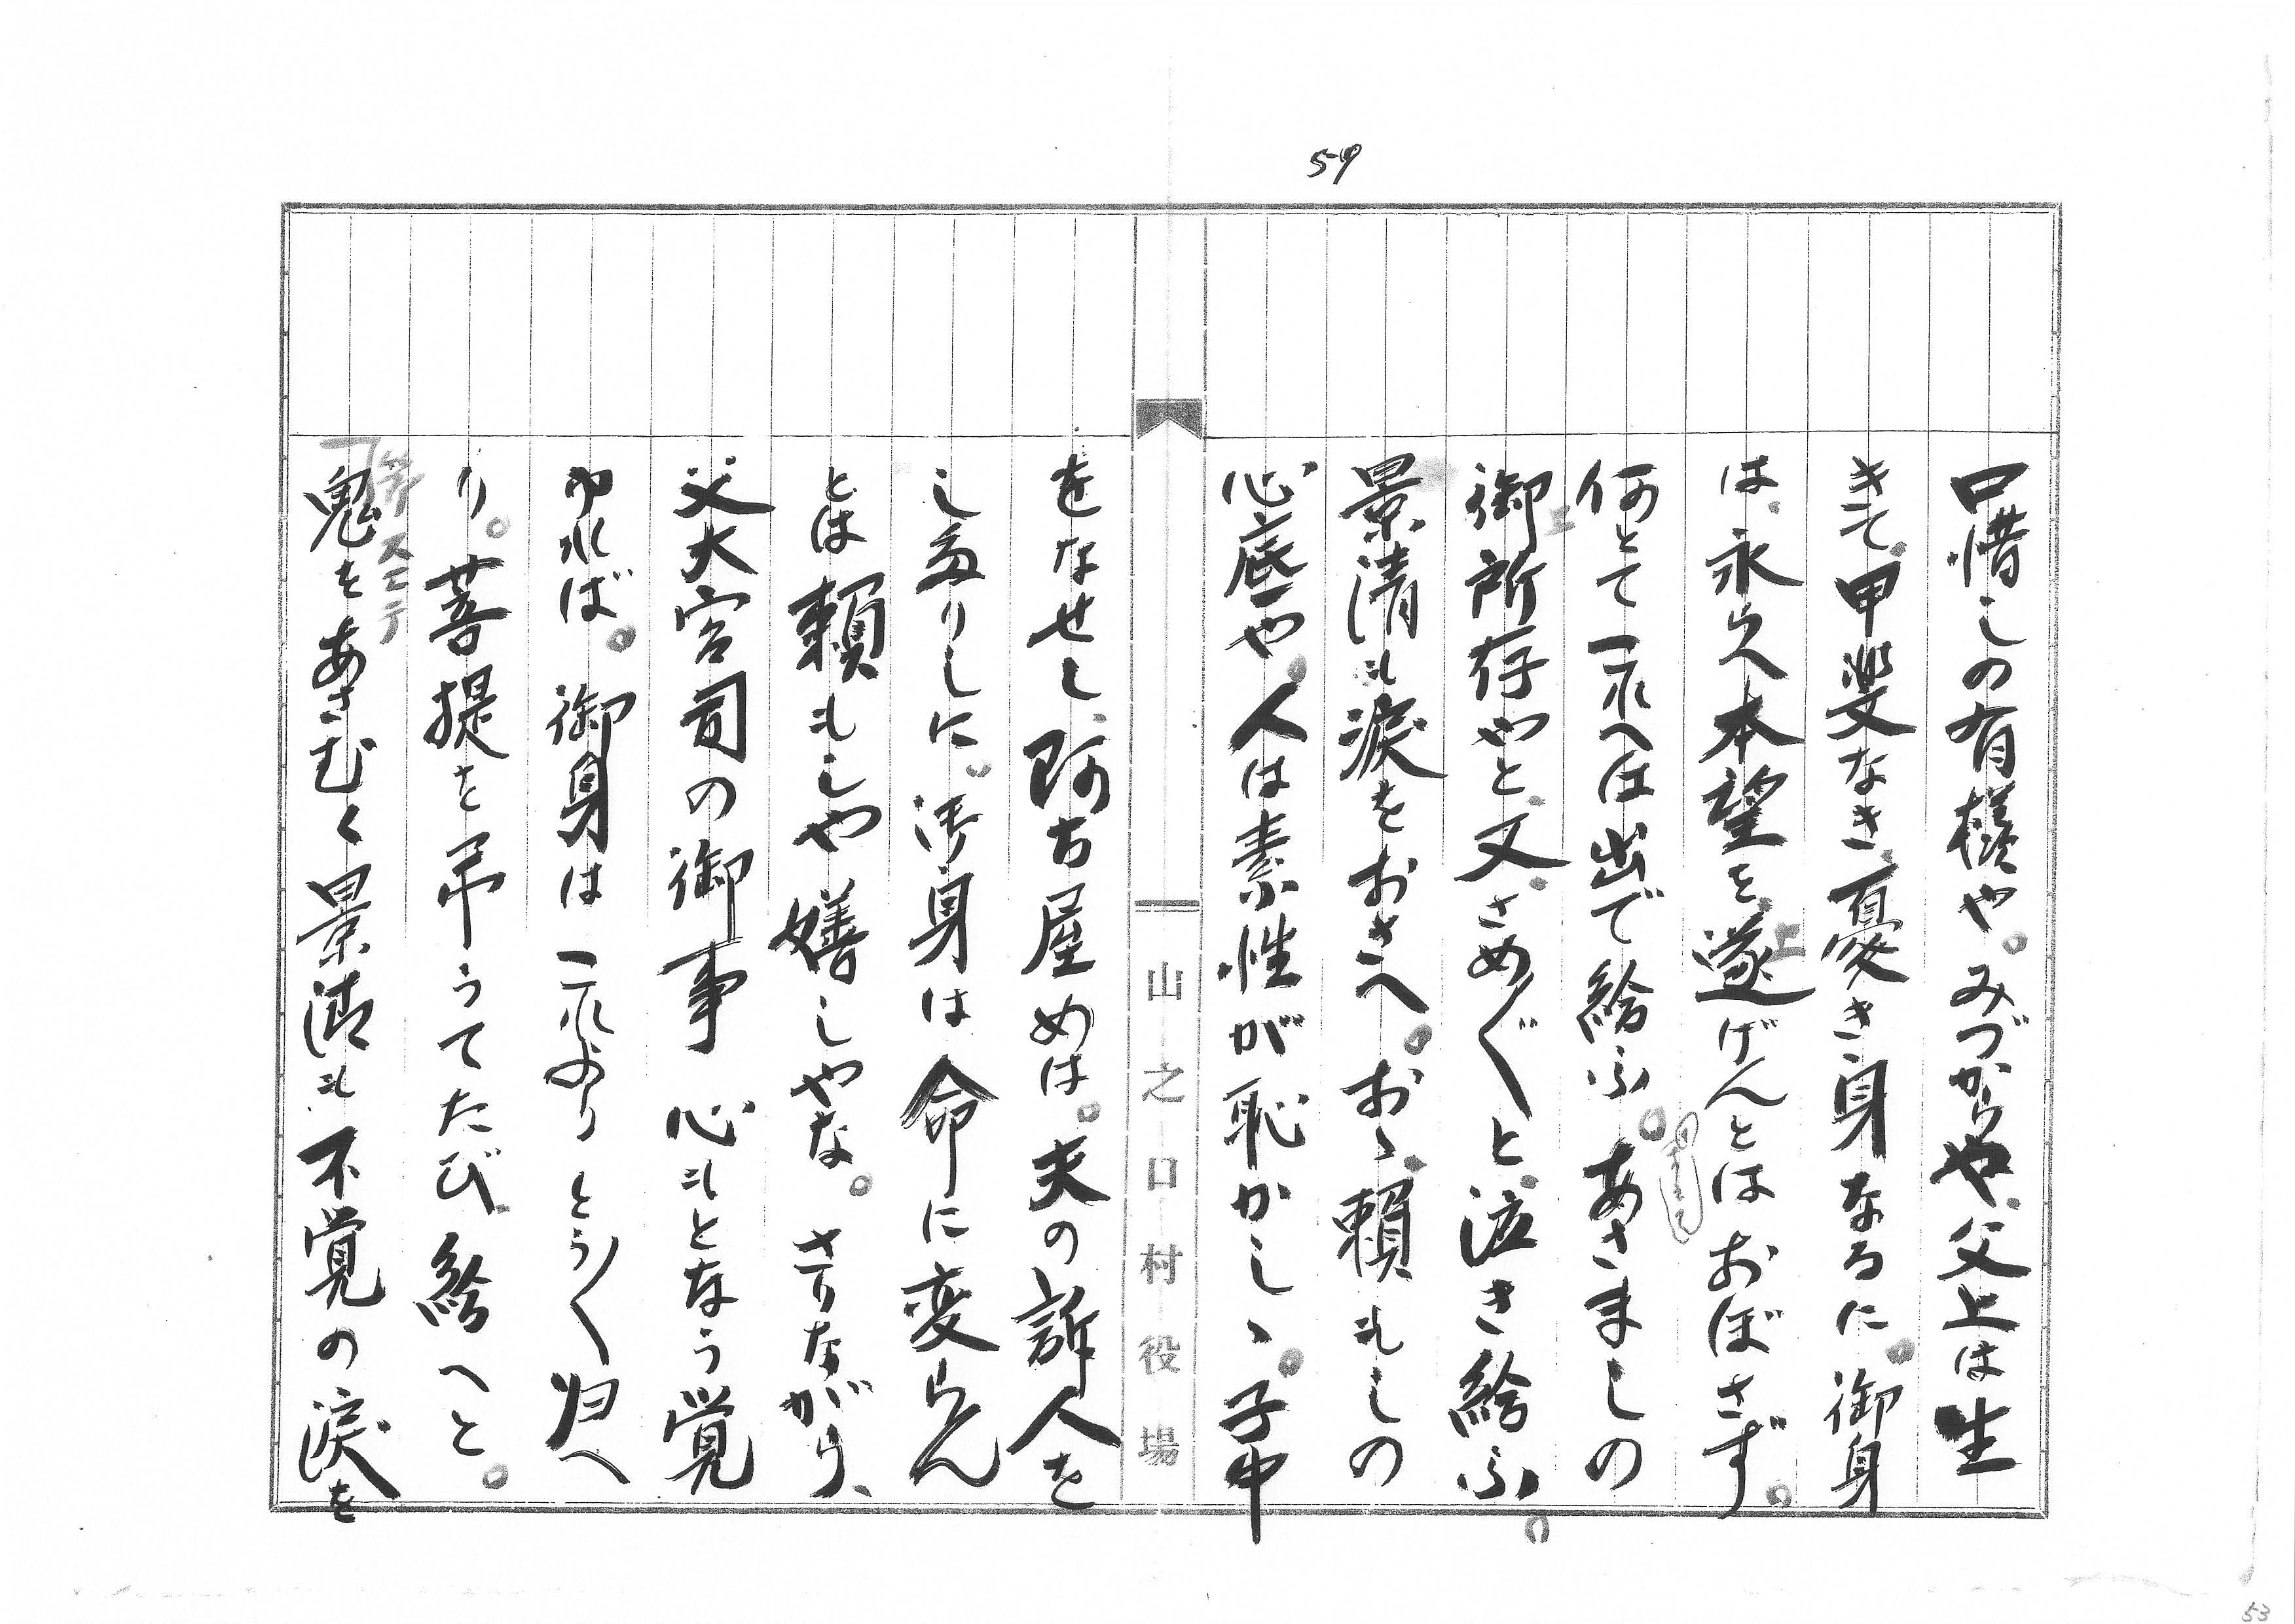 59
口惜しの有様や。みづからや、父上は生
きて、甲斐なき、憂き身なるに。御身
は、永らへ本望を、遂げんとはおぼさず。
上
何とて一示へは出で給ふ。あさましの
御所存やと、又、さめ〴〵と、泣き給ふ。
上
景清も涙をおさへ。おゝ、頼もしの
心底や。人は素性が恥かしゝ。子中
山之口村役場
をなせし、阿古屋めは。夫の訴人を
し参りしに。御身は命に変らん
とは頼もしや嬉しやな。さりながら、
父大宮司の御事心もとなう覚
ゆれば。御身は一示よりとう〳〵帰へ
り。菩提を弔うてたび、給へと。
スエテ
鬼をあざむく景清も不覚の涙を
53